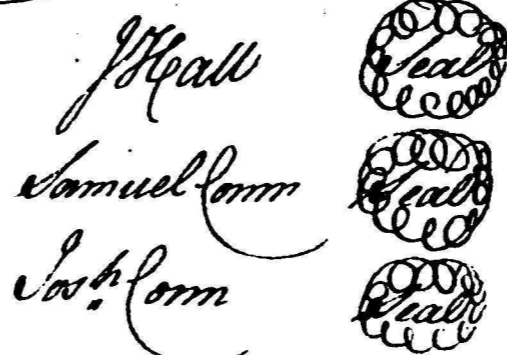 J Hall Seal
Samuel Conn Seal
Josh Conn Seal